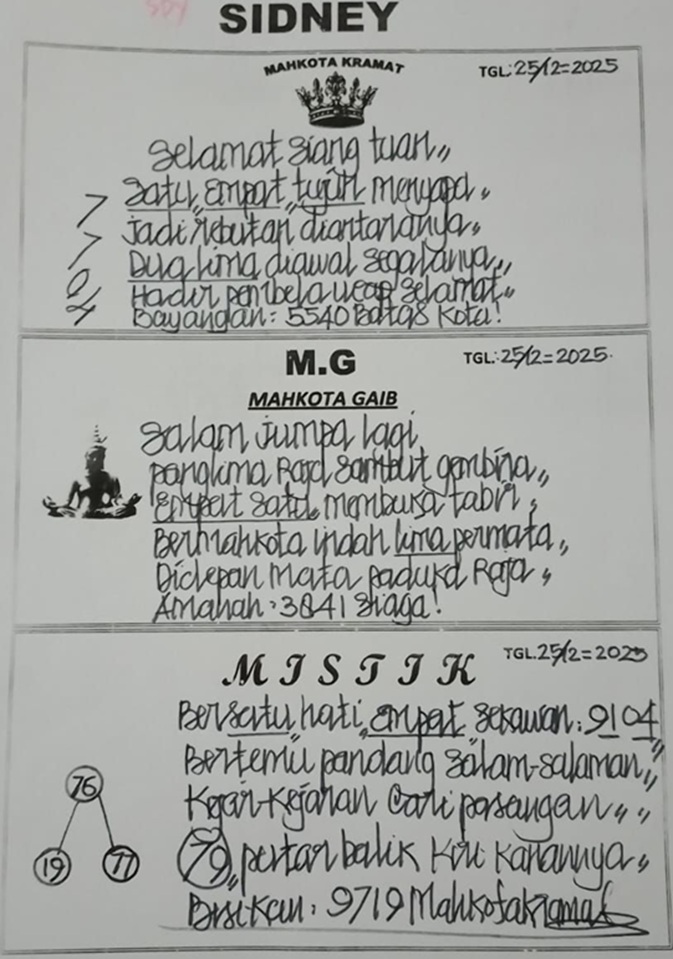 SDY
SIDNEY
MAHKOTA KRAMAT
TGL: 25/12=2025
Selamat siang tuan,,
Satu, empat, tujuh menyapa,
7
Jadi rebutan diantaranya,
7
Dua lima diawal segalanya,,
0
Hadir pembela ucap selamat,,
4
Bayangan: 5540 Batas Kota!
M.G
TGL: 25/12=2025.
MAHKOTA GAIB
Salam jumpa lagi,
panglima Raja sambut gembira,,
Empat satu, membuka tabir,
Bermahkota indah lima permata,,
Didepan mata paduka Raja,
Amanah: 3841 siaga!
MISTIK
TGL. 25/12=2025
Bersatu hati, empat sekawan: 9104
Bertemu pandang salam-salaman,,
76
Kejar-Kejaran Cari pasangan,,
19 77
79, putar balik Kiri Kanannya,,
Bisikan: 9719 Mahkota Kramat